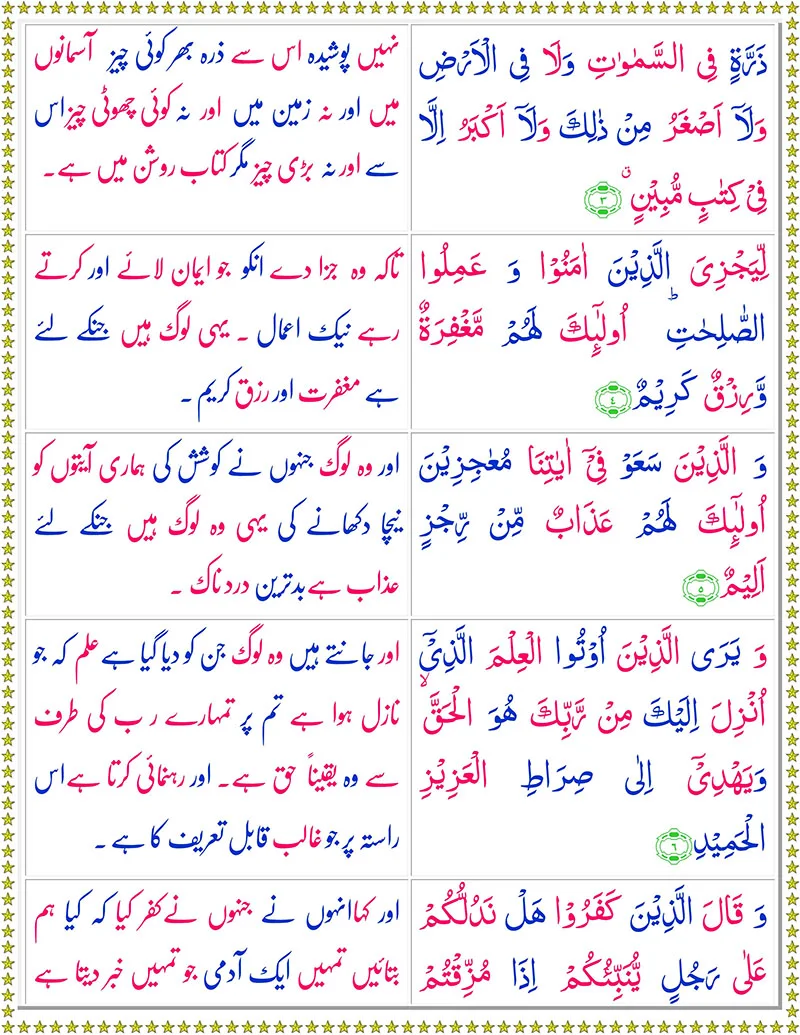 ذَرَّةٍ فِی السَّمٰوٰتِ وَلَا فِی الْاَرْضِ
وَلَاۤ اَصْغَرُ مِنْ ذٰلِكَ وَلَاۤ اَكْبَرُ اِلَّا
فِیْ كِتٰبٍ مُّبِیْنٍ ۙ ۳
نہیں پوشیدہ اس سے ذرہ بھر کوئی چیز آسمانوں
میں اور نہ زمین میں اور نہ کوئی چھوٹی چیز اس
سے اور نہ بڑی چیز مگر کتاب روشن میں ہے۔
لِّیَجْزِیَ الَّذِیْنَ اٰمَنُوْا وَ عَمِلُوا
الصّٰلِحٰتِ ؕ اُولٰٓىِٕكَ لَهُمْ مَّغْفِرَةٌ
وَّرِزْقٌ كَرِیْمٌ ٤
تاکہ وہ جزا دے انکو جو ایمان لائے اور کرتے
رہے نیک اعمال ۔ یہی لوگ ہیں جنکے لئے
ہے مغفرت اور رزق کریم ۔
وَ الَّذِیْنَ سَعَوْ فِیْۤ اٰیٰتِنَا مُعٰجِزِیْنَ
اُولٰٓىِٕكَ لَهُمْ عَذَابٌ مِّنْ رِّجْزٍ
اَلِیْمٌ ٥
اور وہ لوگ جنہوں نے کوشش کی ہماری آیتوں کو
نیچا دکھانے کی یہی وہ لوگ ہیں جنکے لئے
عذاب ہے بدترین درد ناک ۔
وَ یَرَی الَّذِیْنَ اُوْتُوا الْعِلْمَ الَّذِیْۤ
اُنْزِلَ اِلَیْكَ مِنْ رَّبِّكَ هُوَ الْحَقَّ ۙ
وَیَهْدِیْۤ اِلٰی صِرَاطِ الْعَزِیْزِ
الْحَمِیْدِ ٦
اور جانتے ہیں وہ لوگ جن کو دیا گیا ہے علم کہ جو
نازل ہوا ہے تم پر تمہارے رب کی طرف
سے وہ یقیناً حق ہے۔ اور رہنمائی کرتا ہے اس
راستہ پر جو غالب قابل تعریف کا ہے ۔
وَ قَالَ الَّذِیْنَ كَفَرُوْا هَلْ نَدُلُّكُمْ
عَلٰی رَجُلٍ یُّنَبِّئُكُمْ اِذَا مُزِّقْتُمْ
اور کہا انہوں نے جنہوں نے کفر کیا کہ کیا ہم
بتائیں تمہیں ایک آدمی جو تمہیں خبر دیتا ہے